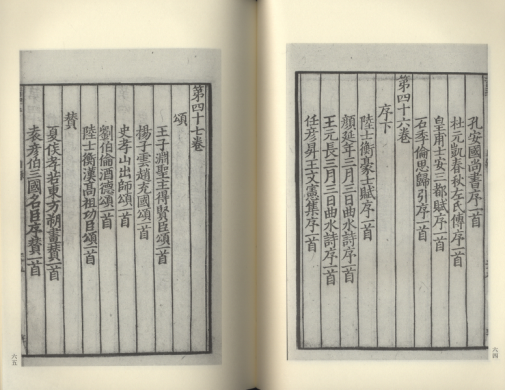 孔安國尚書序一首
杜元凱春秋左氏傳序一首
皇甫士安三都賦序一首
石季倫思歸引序一首
第四十六卷
序下
陸士衡豪士賦序一首
顏延年三月三日曲水詩序一首
王元長三月三日曲水詩序一首
任彥昇王文憲集序一首
六四
第四十七卷
頌
王子淵聖主得賢臣頌一首
揚子雲趙充國頌一首
史孝山出師頌一首
劉伯倫酒德頌一首
陸士衡漢高祖功臣頌一首
贊
夏侯孝若東方朔畫贊一首
袁彥伯三國名臣序贊一首
六五